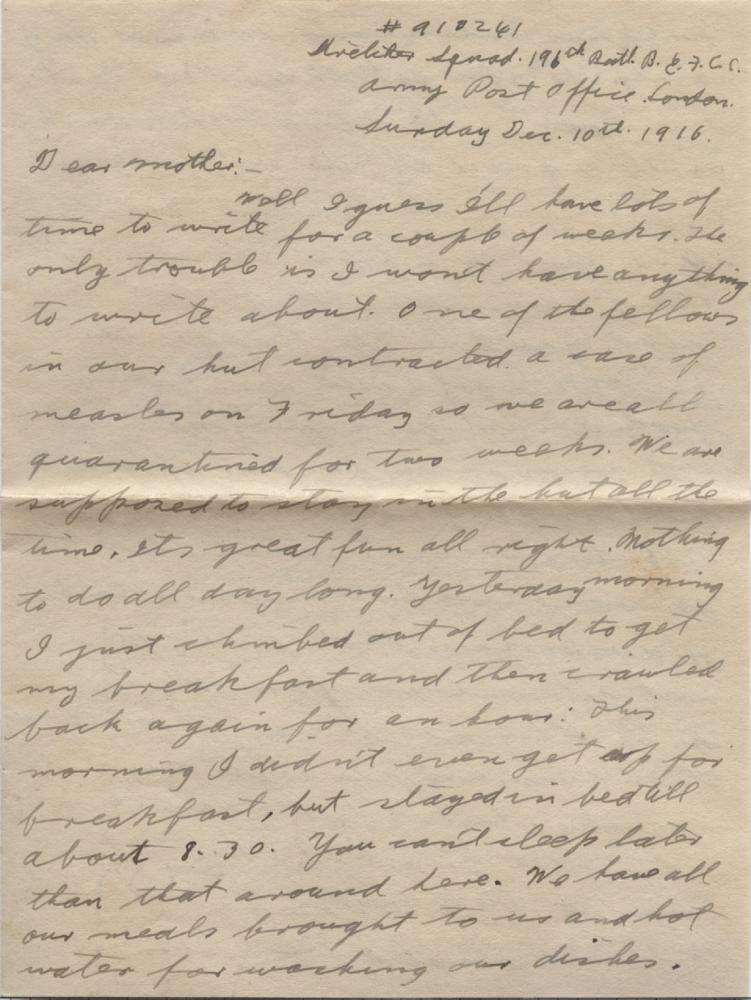 # 910261
Squad. 196th Batt. B. E. F. C. C.
Army Post Office. London.
Sunday Dec. 10th. 1916.
Dear mother:-
Well I guess I'll have lots of
time to write for a couple of weeks. The
only trouble is I won't have anything
to write about. One of the fellows
in our hut contracted a case of
measles on Friday so we are all
quarantined for two weeks. We are
supposed to stay in the hut all the
time. Its great fun all right. Nothing
to do all day long. Yesterday morning
I just climbed out of bed to get
my breakfast and then crawled
back again for an hour. This
morning I didn't even get up for
breakfast, but stayed in bed till
about 8.30. You can't sleep later
than that around here. We have all
our meals brought to us and hot
water for washing our dishes.